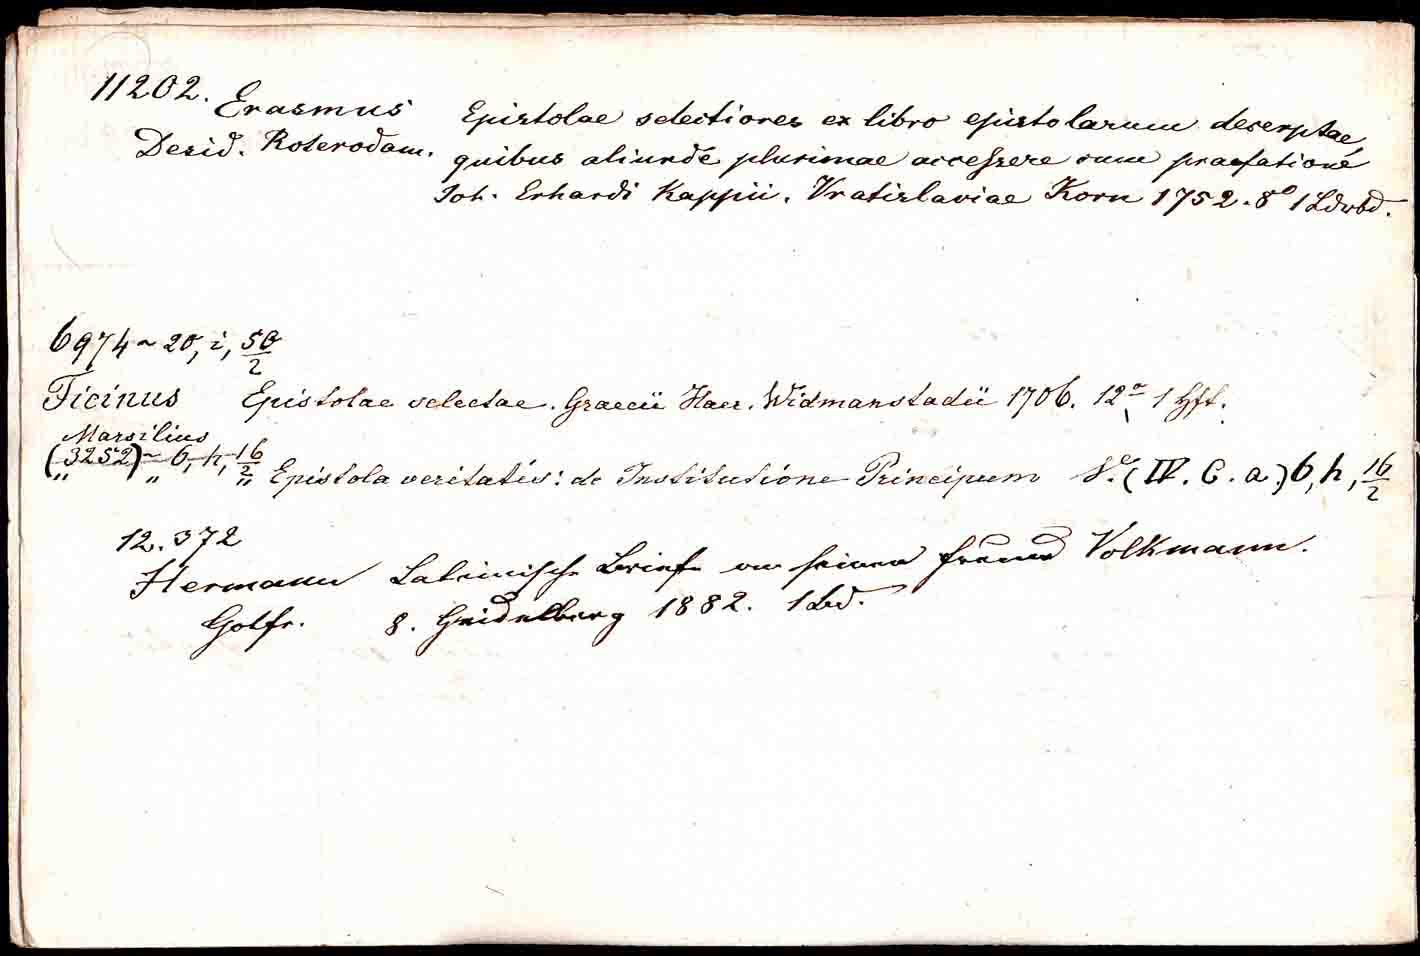 11202. Erasmus Epistolae selectiores ex libro epistolarum decerptae,
Desid. Roterodam. quibus aliunde plurimae accessere cum praefatione
Joh. Erhardi Kappii. Vratislaviae Korn 1752. 8° 1 Ldrbd.
6974 ~ 20, i, 50/2
Ficinus Epistolae selectae. Graecii Haer. Widmanstadii 1706. 12° 1 Hft.
Marsilius
(3252) ~ 6, h, 16/2 Epistola veritatis: de Institutione Principum 8° (IV. C. a.) 6, h, 16/2
12.372
Hermann Lateinische Briefe an seinen Freund Volkmann.
Gotfr. 8. Heidelberg 1882. 1 Bd.